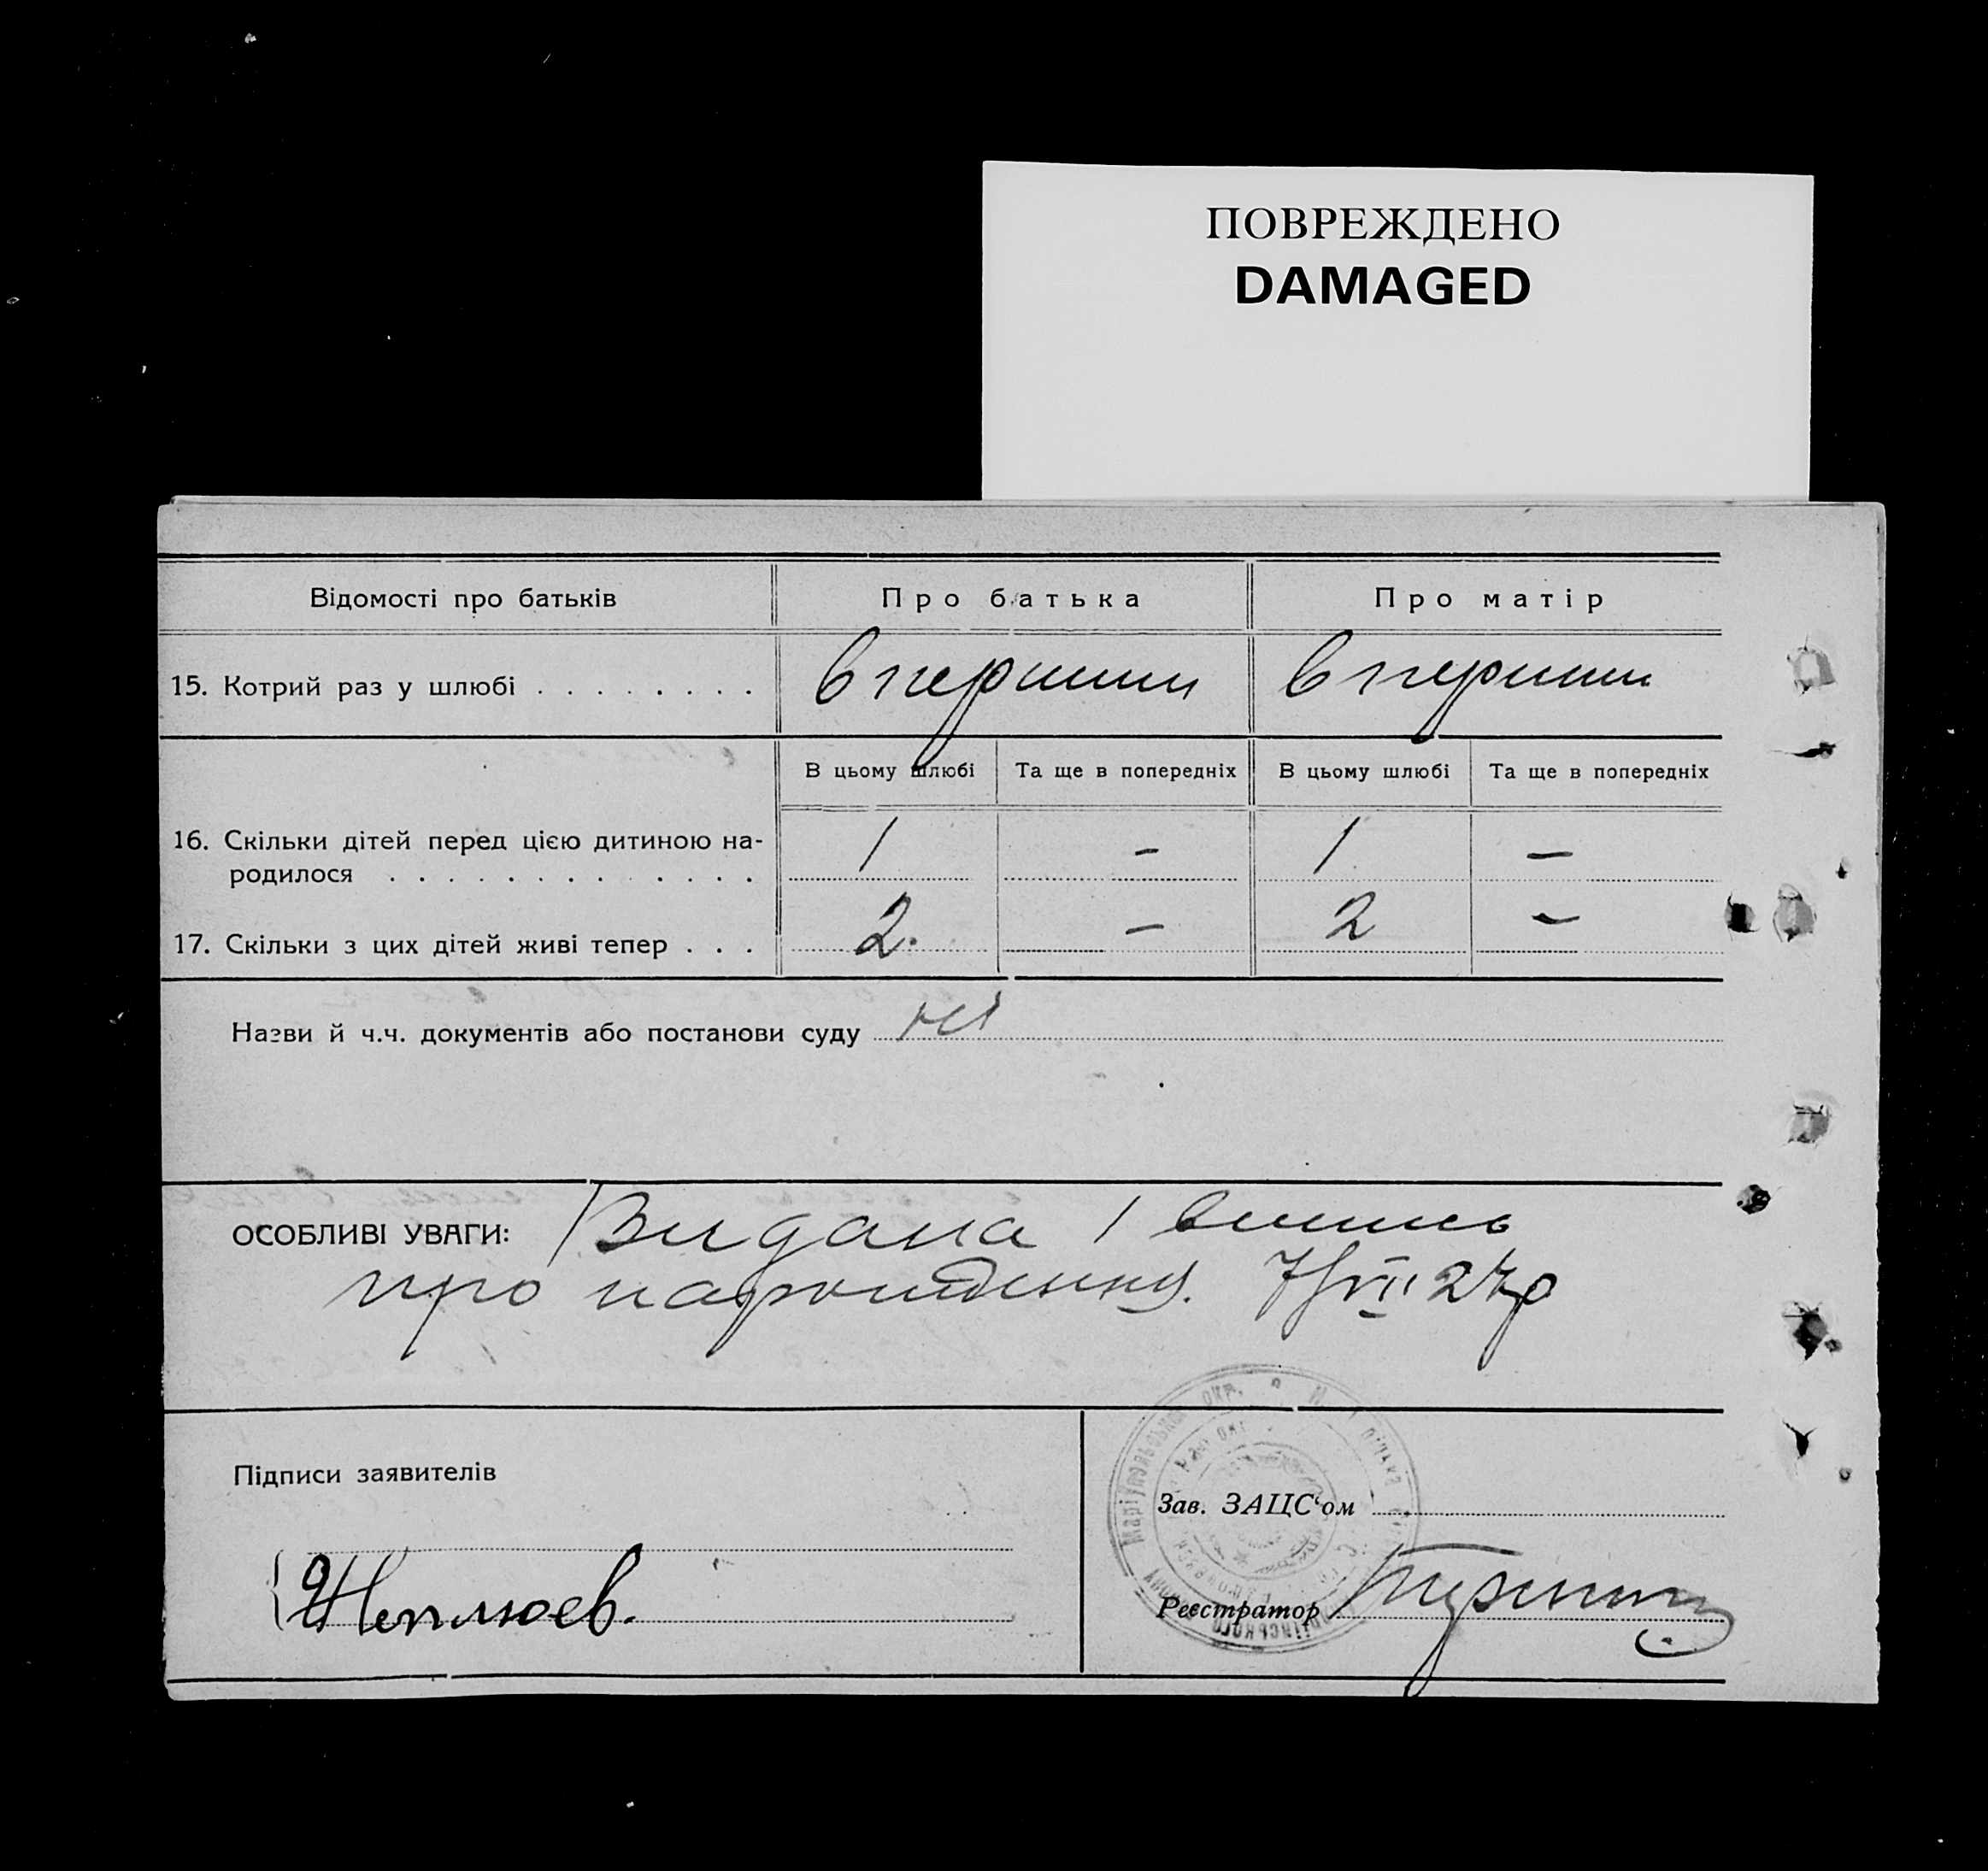 ПОВРЕЖДЕНО
DAMAGED
Відомості про батьків Про батька Про матір
15. Котрий раз у шлюбі . . . . . . . . вперший вперший
В цьому шлюбі Та ще в попередніх В цьому шлюбі Та ще в попередніх
16. Скільки дітей перед цією дитиною на-
родилося . . . . . . . . . . . . . 1 - 1 -
17. Скільки з цих дітей живі тепер . . . 2. - 2 -
Назви й ч.ч. документів або постанови суду ні
ОСОБЛИВІ УВАГИ: Видана 1 випись
про народження. 7/VII 27р
Маріупольської окр.
Підписи заявителів
Зав. ЗАЦС'ом
Неплюев.
Реєстратор